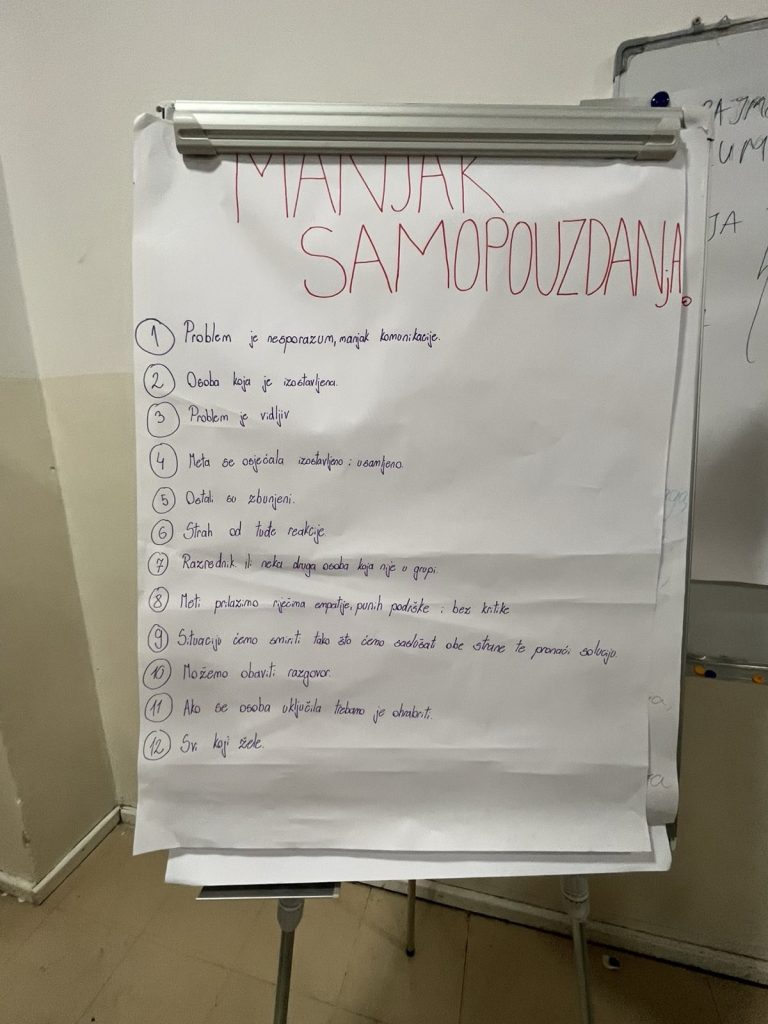 MANJAK
SAMOPOUZDANjA.
1 Problem je nesporazum, manjak komunikacije.
2 Osoba koja je izostavljena.
3 Problem je vidljiv
4 Meta se osjećala izostavljeno i usamljeno.
5 Ostali su zbunjeni.
6 Strah od tuđe reakcije.
7 Razrednik ili neka druga osoba koja nije u grupi.
8 Meti prilazimo riječima empatije, punih podrške i bez kritike
9 Situaciju ćemo smiriti tako što ćemo saslušat obe strane te pronaći soluciju.
10 Možemo obaviti razgovor.
11 Ako se osoba uključila trebamo je ohrabriti.
12 Svi koji žele.
JA